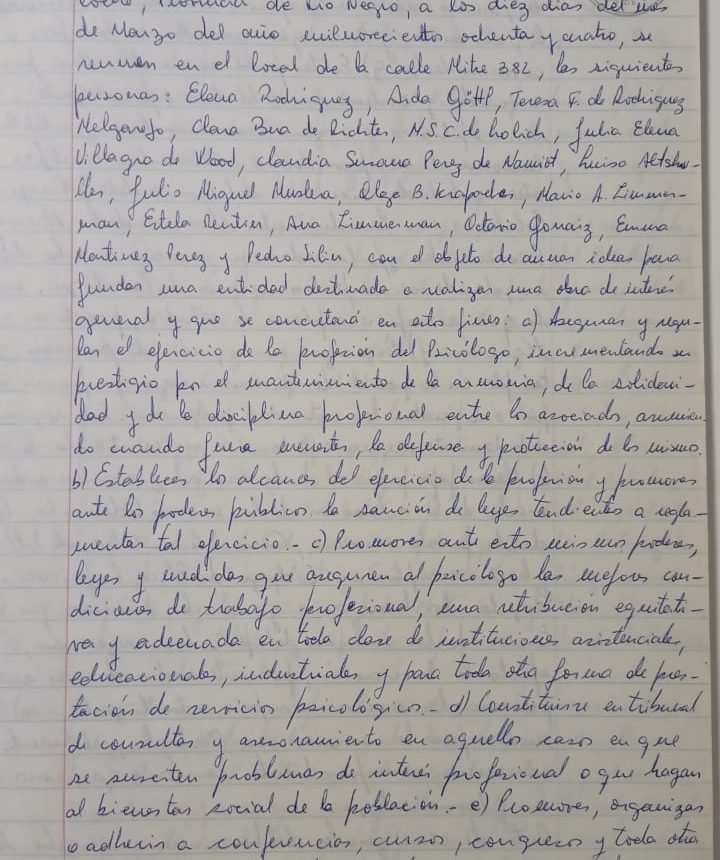 Provincia de Río Negro, a los diez días del mes
de Marzo del año mil novecientos ochenta y cuatro, se
reunen en el local de la calle Mitre 382, las siguientes
personas: Elena Rodriguez, Aida Göttl, Teresa F. de Rodriguez
Melgarejo, Clara Bua de Richter, M.S.C. de Folich, Julia Elena
Villagra de Wood, Claudia Susana Perez de Namiot, Luisa Altshu-
ller, Julio Miguel Muslera, Olga B. Mario A. Zimmer-
man, Estela Ana Zimmerman, Octavio Emma
Martinez Perez y Pedro con el objeto de aunar ideas para
fundar una entidad destinada a realizar una obra de interés
general y que se concretará en estos fines: a) Asegurar y regu-
lar el ejercicio de la profesión del Psicólogo, incrementando su
prestigio por el mantenimiento de la armonía, de la solidari-
dad y de la disciplina profesional entre los asociados, asumien-
do cuando fuera menester, la defensa y protección de los mismos.
b) Establecer los alcances del ejercicio de la profesión y promover
ante los poderes públicos la sanción de leyes tendientes a regla-
mentar tal ejercicio.- c) Promover ante estos mismos poderes,
leyes y medidas que aseguren al psicólogo las mejores con-
diciones de trabajo profesional, una retribución equitati-
va y adecuada en toda clase de instituciones asistenciales,
educacionales, industriales y para toda otra forma de pres-
tación de servicios psicológicos.- d) Constituirse en tribunal
de consultas y asesoramiento en aquellos casos en que
se susciten problemas de interés profesional o que hagan
al bienestar social de la población.- e) Promover, organizar
o adherir a conferencias, cursos, congresos y toda otra